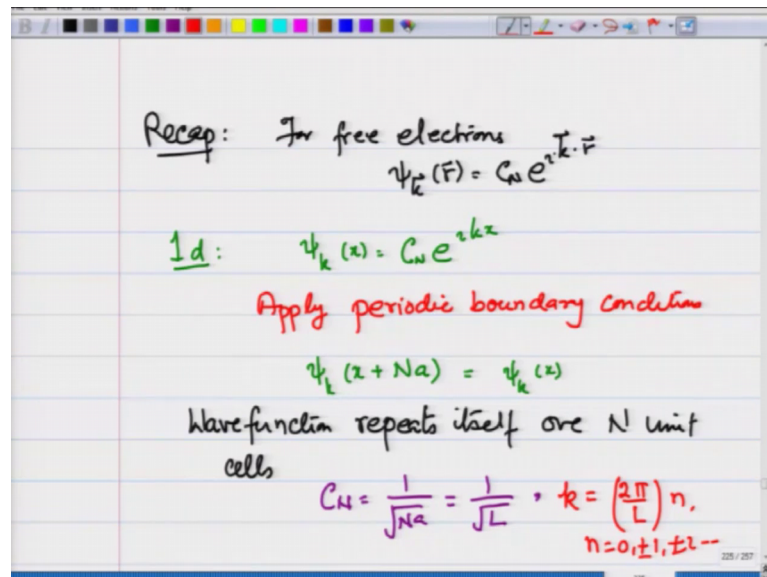 Recap: For free electrons
ψ_k⃗ (r⃗) = C_N e^{i k⃗·r⃗}
1d: ψ_k (x) = C_N e^{ikx}
Apply periodic boundary condition
ψ_k (x + Na) = ψ_k (x)
Wavefunction repeats itself ove N unit
cells
C_N = 1/√Na = 1/√L , k = (2π/L) n,
n=0,±1,±2--
225 / 257